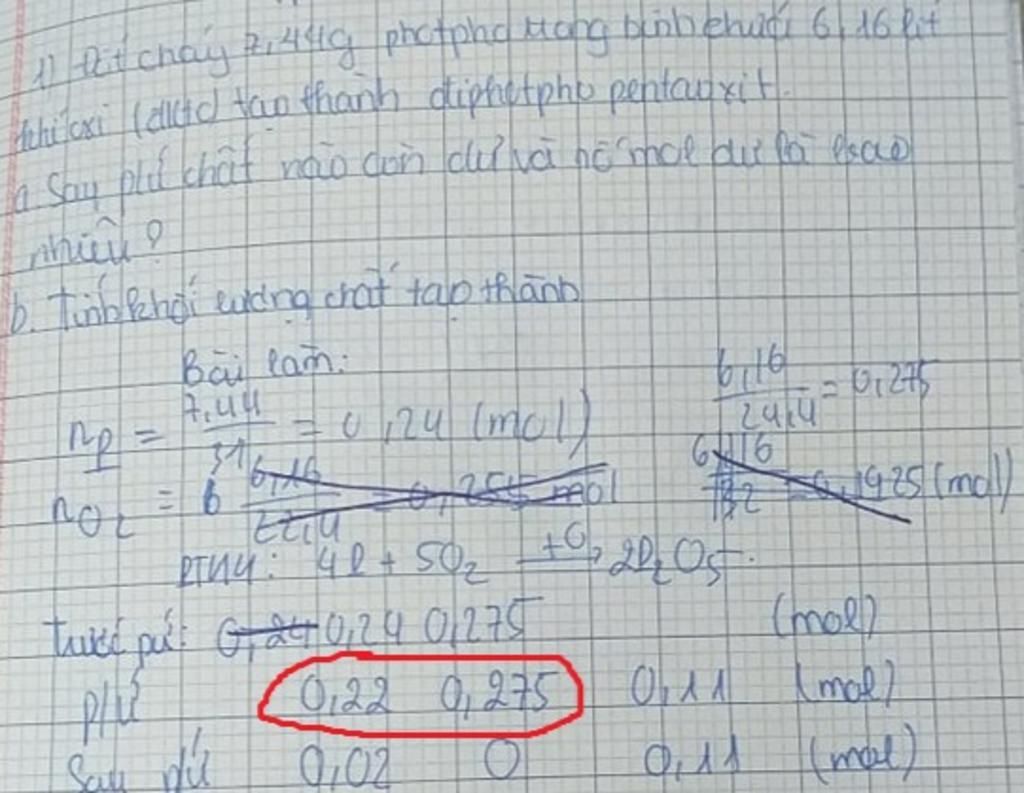 1) Đốt cháy 7,44g photpho trong bình chứa 6,16 lít
khí oxi (đktc) tạo thành điphotpho pentaoxit.
a Sau p/ứ chất nào còn dư và số mol dư là bao
nhiêu?
b. Tính khối lượng chất tạo thành
Bài làm:
nP = 7,44 / 31 = 0,24 (mol)
6,16 / 22,4 = 0,275
nO2 =
PTHH: 4P + 5O2 →(t°) 2P2O5.
trước pứ: 0,24 0,24 0,275 (mol)
p/ứ 0,22 0,275 0,11 (mol)
Sau p/ứ 0,02 0 0,11 (mol)